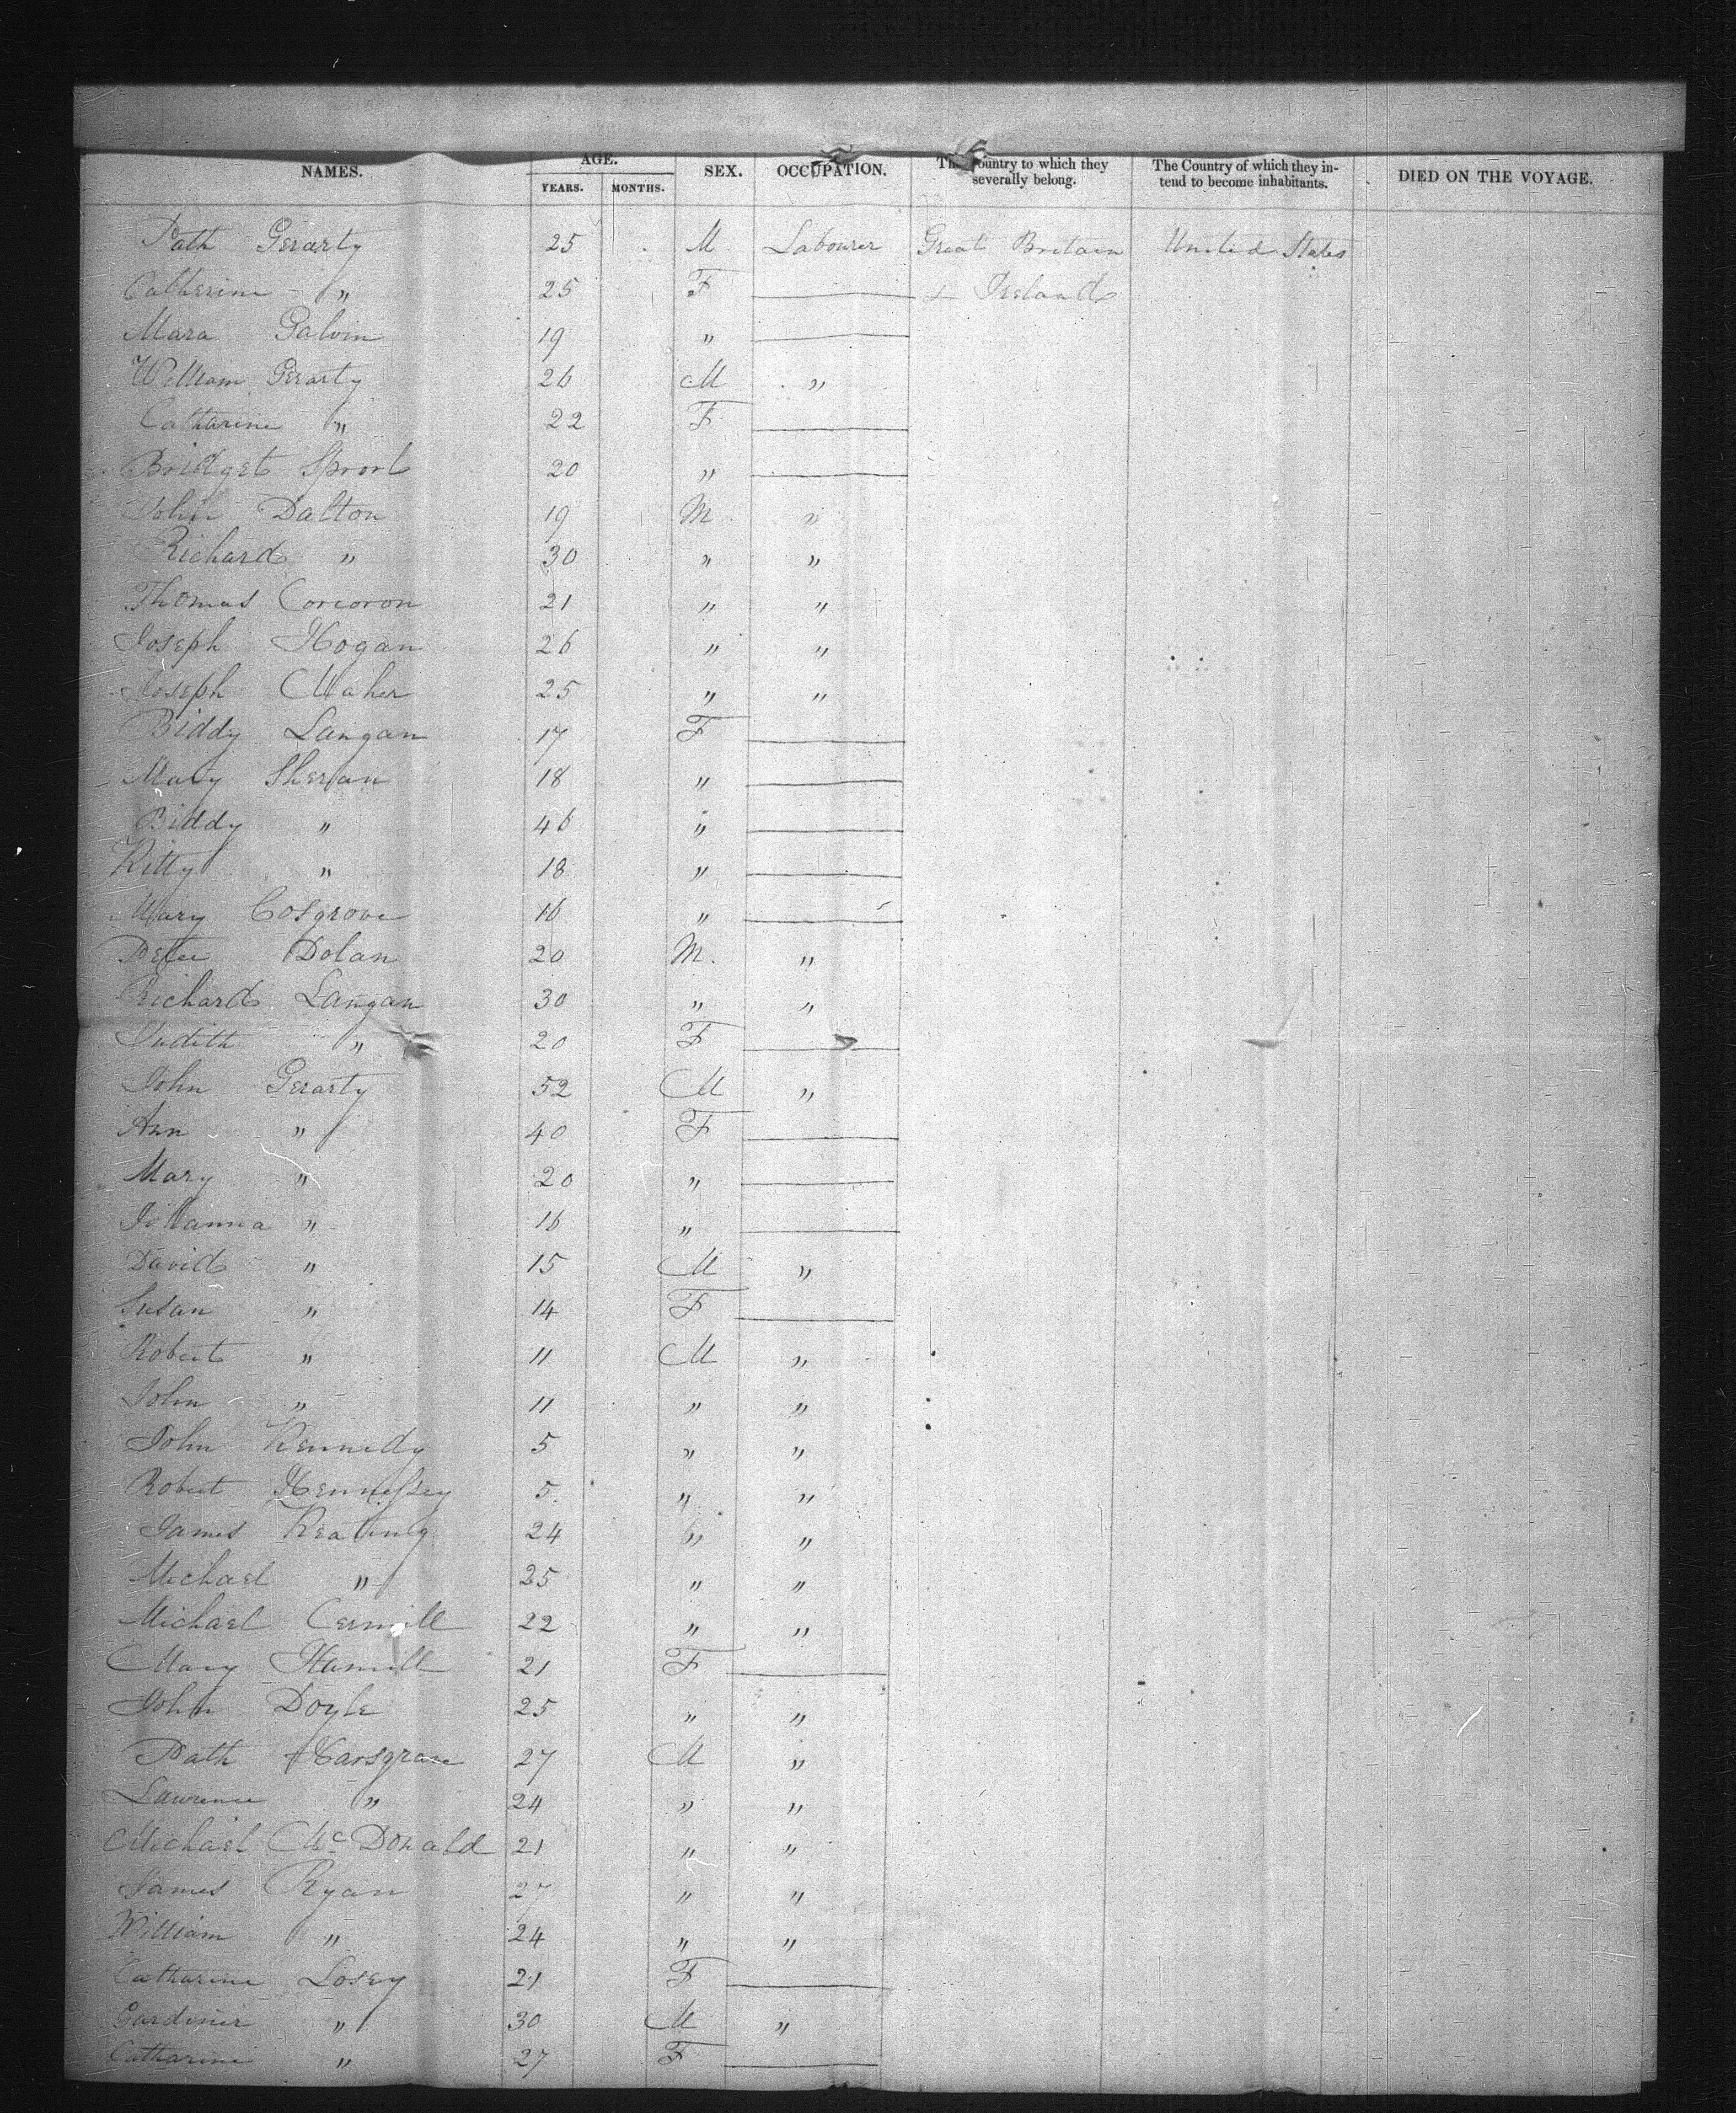 NAMES. AGE. SEX. OCCUPATION. The Country to which they severally belong. The Country of which they intend to become inhabitants. DIED ON THE VOYAGE.
YEARS. MONTHS.
Path Gerarty 25 M Labourer Great Britain United States
Catherine " 25 F — & Ireland
Mara Galvin 19 " —
William Gerarty 26 M "
Catharine " 22 F —
Bridget 20 " —
John Dalton 19 M "
Richard " 30 " "
Thomas Corcoron 21 " "
Joseph Hogan 26 " "
Joseph Maher 25 " "
Biddy Langan 17 F —
Mary Sheridan 18 " —
Biddy " 46 " —
Kitty " 18 " —
Mary Cosgrove 16 " —
Peter Dolan 20 M. "
Richard Langan 30 " "
Judith " 20 F —
John Gerarty 52 M "
Ann " 40 F —
Mary " 20 " —
Johanna " 16 " —
David " 15 M "
Susan " 14 F —
Robert " 11 M "
John " 11 " "
John Kennedy 5 " "
Robert Hennessey 5 " "
James Keating 24 " "
Michael " 25 " "
Michael 22 " "
Mary Hamill 21 F —
John Doyle 25 " "
Path 27 M "
Lawrence " 24 " "
Michael McDonald 21 " "
James Ryan 27 " "
William " 24 " "
Catharine Losey 21 F —
Gardiner " 30 M "
Catharine " 27 F —